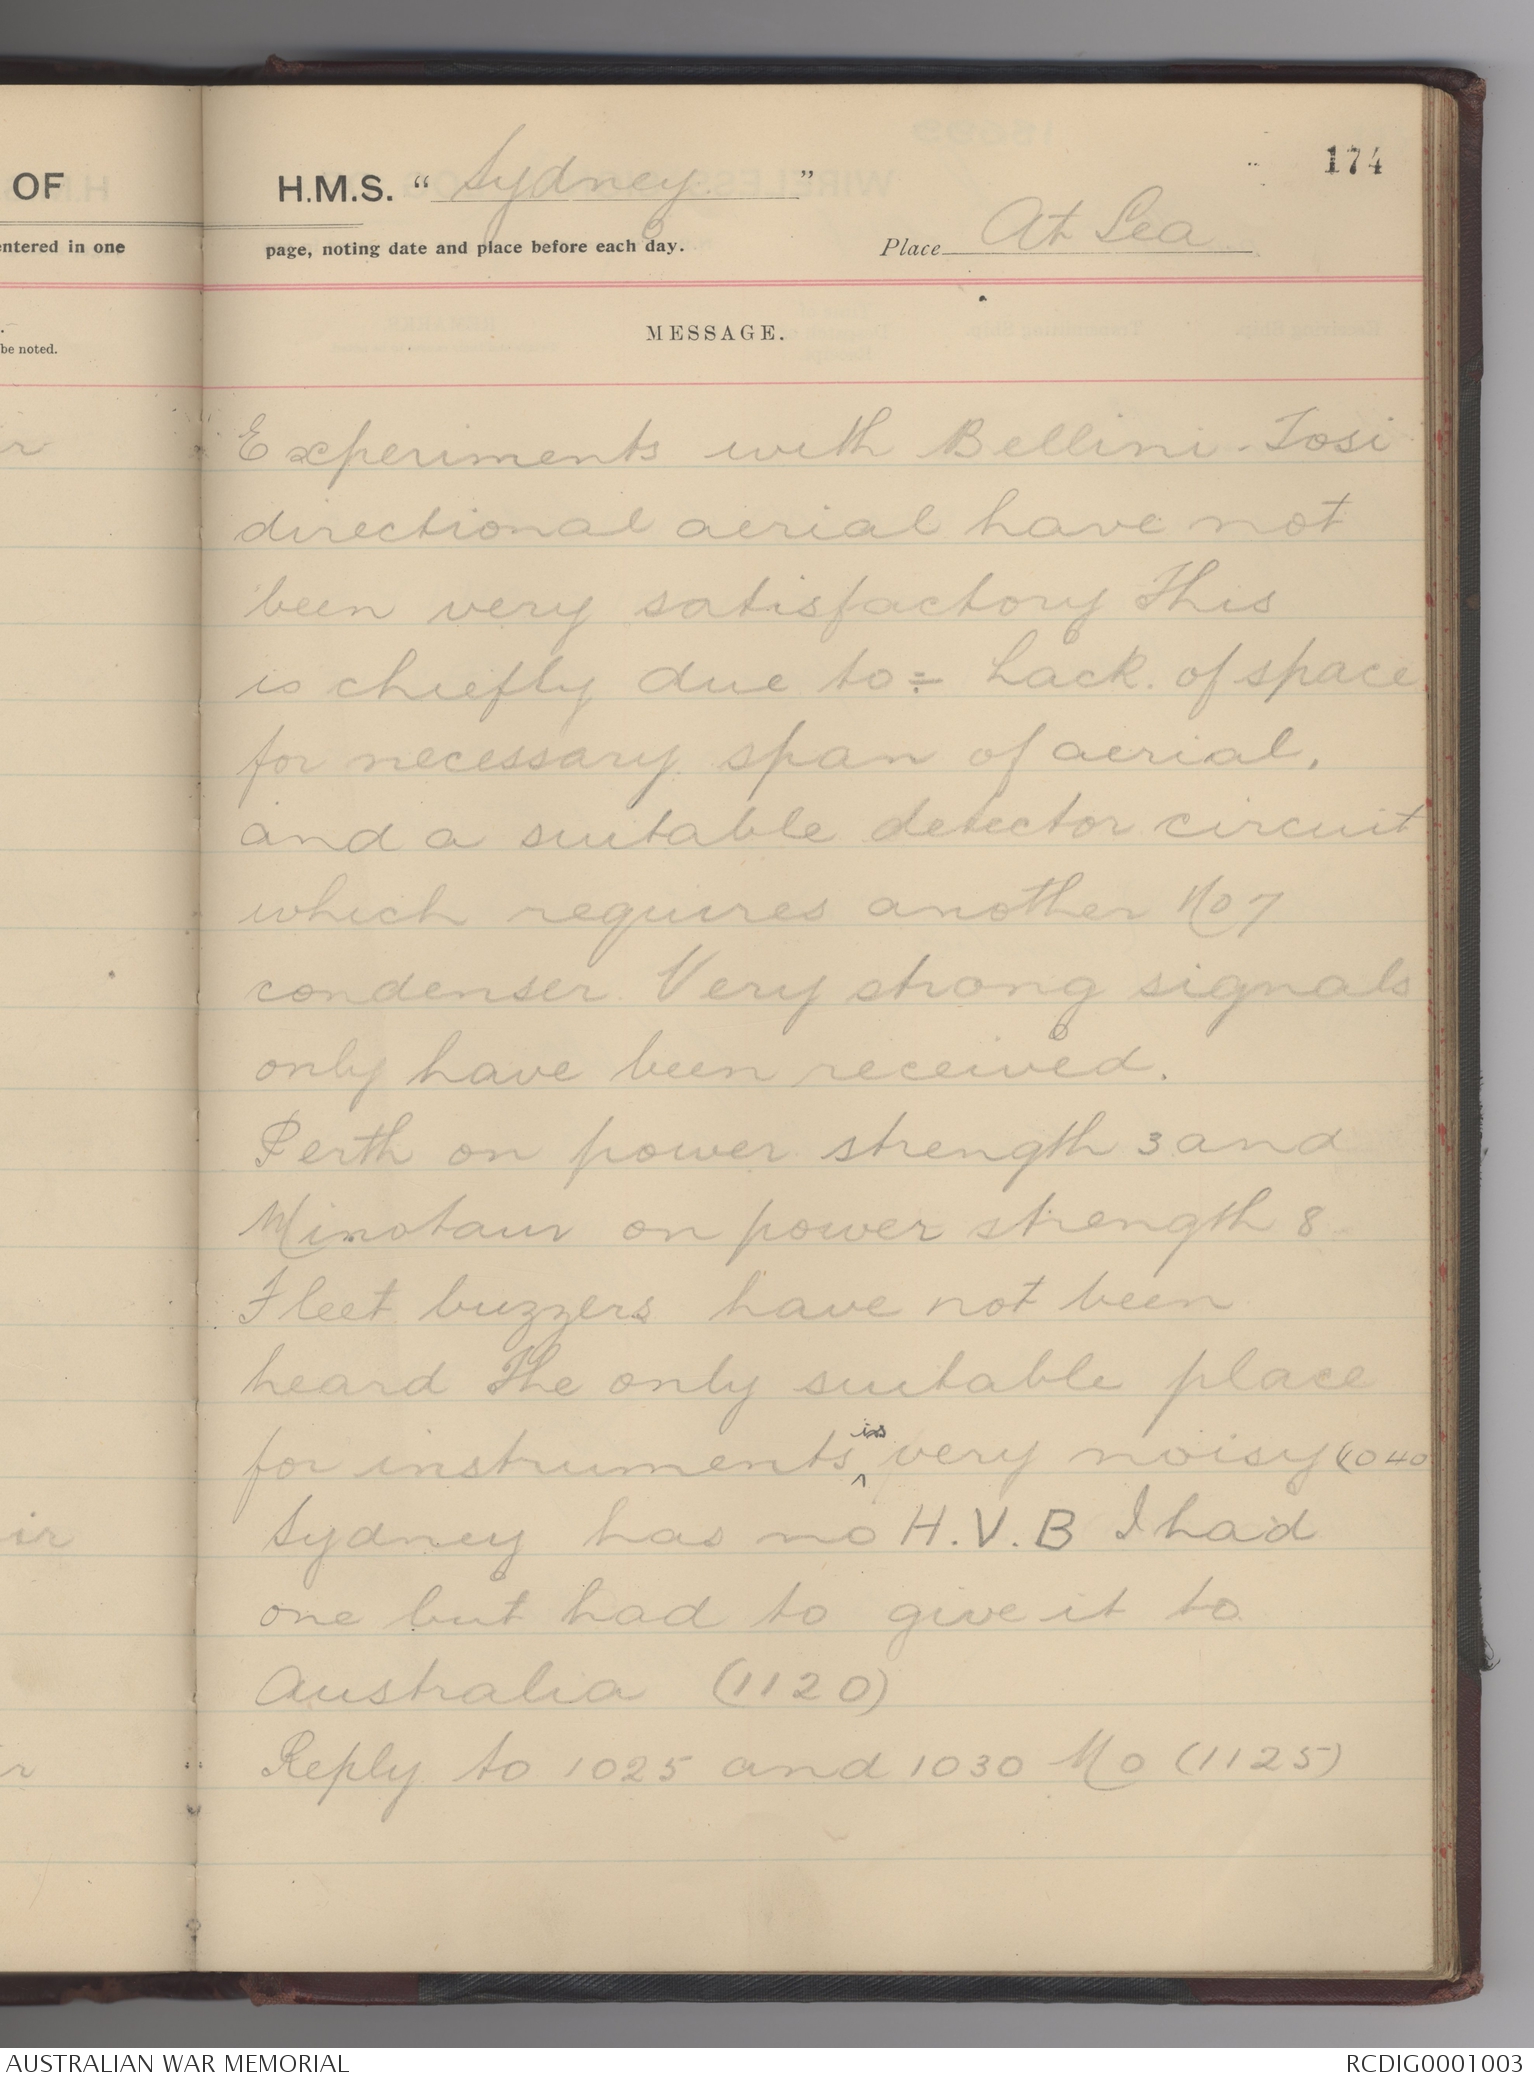 174
OF
H.M.S. "Sydney"
entered in one
page, noting date and place before each day.
Place At Sea
be noted.
MESSAGE.
Experiments with Bellini-Tosi
directional aerial have not
been very satisfactory This
is chiefly due to:- Lack of space
for necessary span of aerial,
and a suitable detector circuit
which requires another No 7
condenser. Very strong signals
only have been received.
Perth on power strength 3 and
Minotaur on power strength 8
Fleet buzzers have not been
heard The only suitable place
for instruments is very noisy (1040
Sydney has no H.V.B I had
one but had to give it to
Australia (1120)
Reply to 1025 and 1030 No (1125)
AUSTRALIAN WAR MEMORIAL
RCDIG0001003